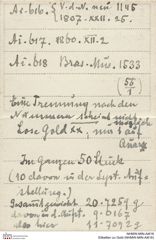 Ai-616. § V.d.N. neu 1145
(1807. XXII. 25.
Ai-617. 1860. XII. 2
Ai-618 Bras. Mus. 1533
(56/1)
Eine Trennung nach den
Nummern scheint nicht möglich
Lose Gold xx, mit auf
Quarz
Im Ganzen 50 Stück
(10 davon in der Syst. Auf-
stellung.)
Gesamtgewicht 20.7254 g
davon i. d. Aufst. 9.0167 g
das hier 11.7092 g